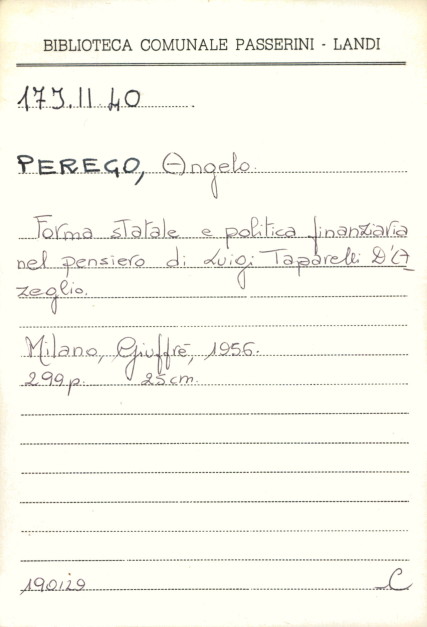 BIBLIOTECA COMUNALE PASSERINI - LANDI
173.II.40
PEREGO, Angelo
Forma statale e politica finanziaria
nel pensiero di Luigi Taparelli D'A
zeglio.
Milano, Giuffrè, 1956.
299 p. 25 cm.
190129 C